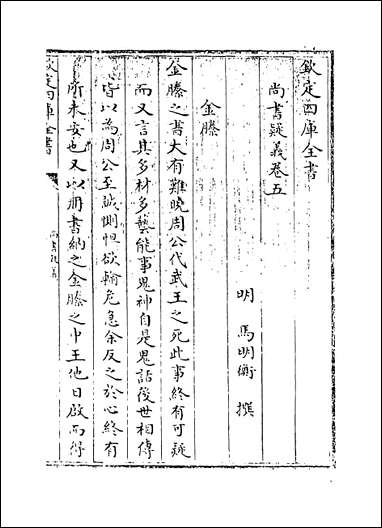 欽定四庫全書
尚書疑義卷五
明 馬明衡 撰
金縢
金縢之書大有難曉周公代武王之死此事終有可疑
而又言其多材多藝能事鬼神自是鬼話後世相傳
皆以為周公至誠惻怛欲輸危急余反之於心終有
所未安也又以册書納之金縢之中王他日啟而得
欽定四庫全書
尚書疑義